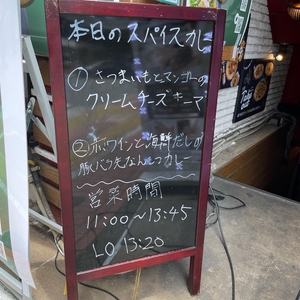 本日のスパイスカレ
①さつまいもとマンゴーの
クリームチーズキーマ
②赤ワインと海鮮だしの
豚バラ先なんこつカレー
営業時間
11:00～13:45
LO 13:20